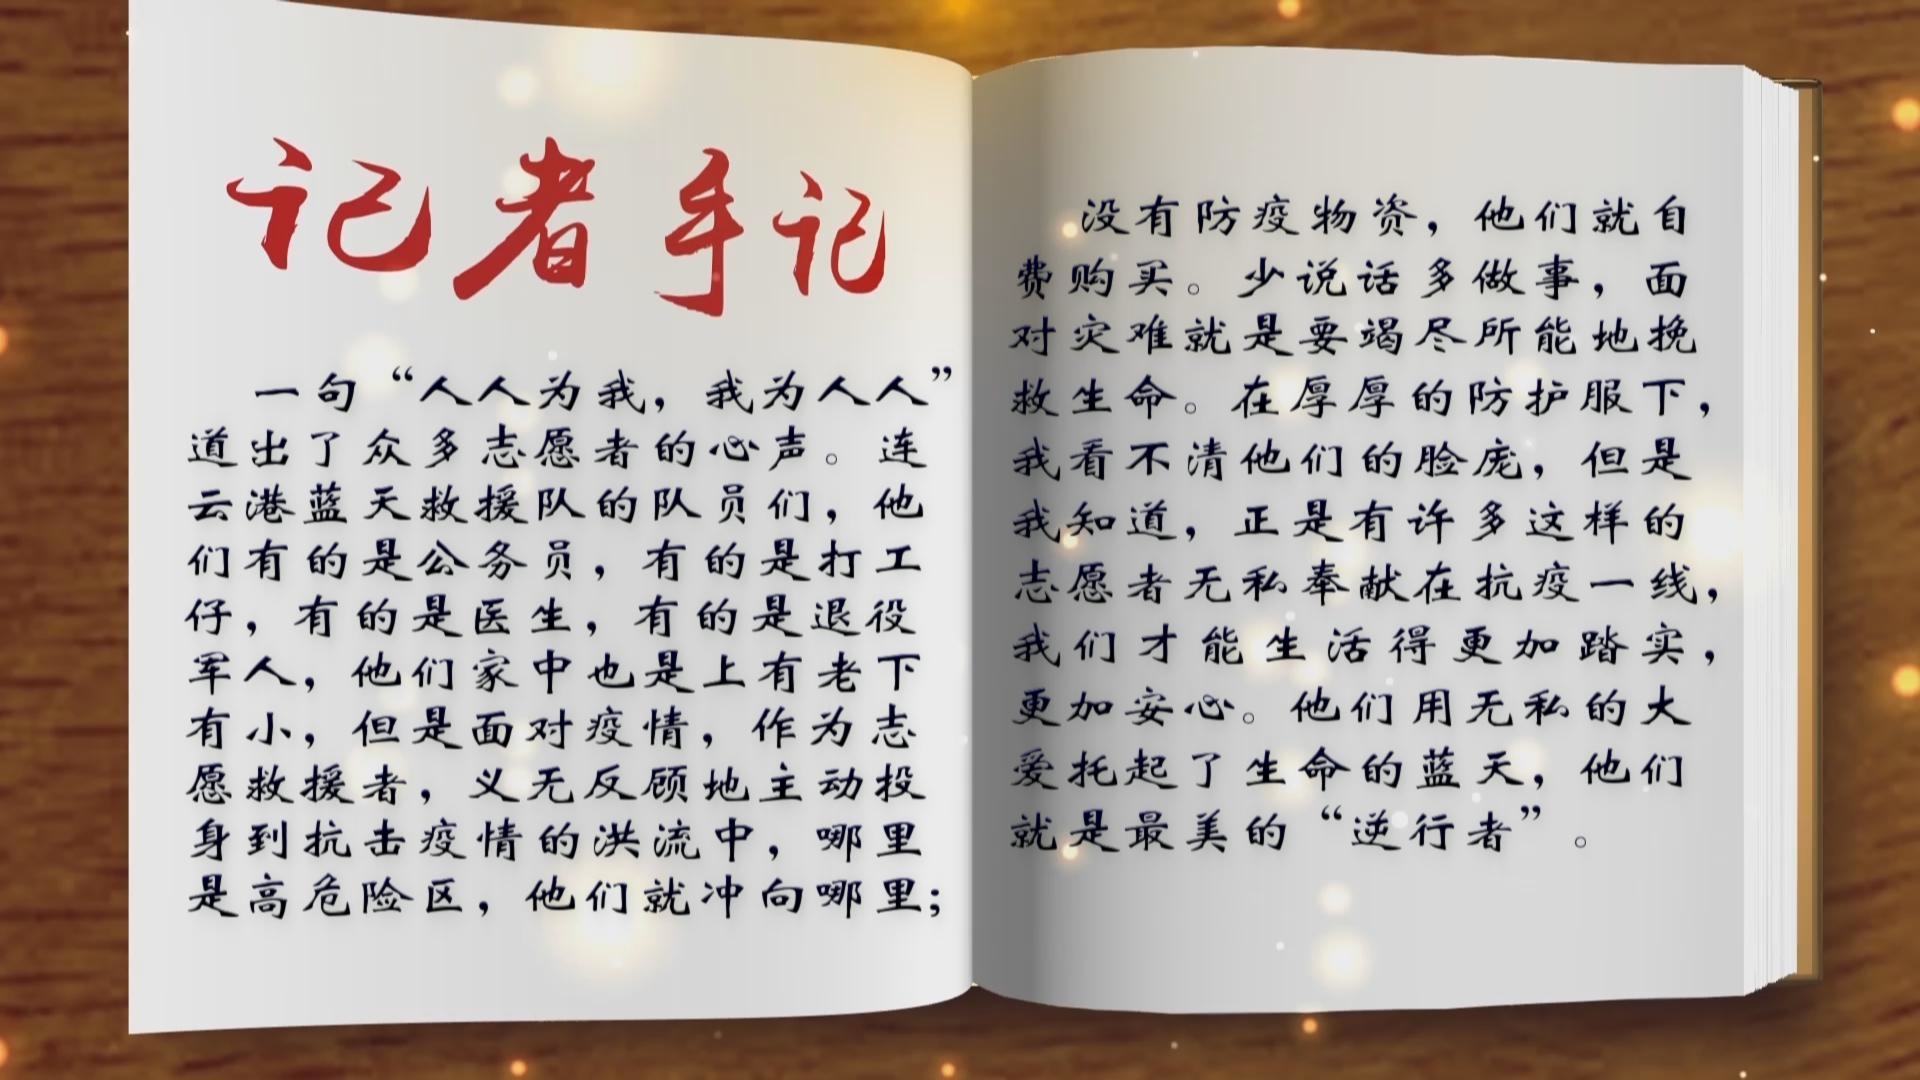 记者手记
一句“人人为我，我为人人”
道出了众多志愿者的心声。连
云港蓝天救援队的队员们，他
们有的是公务员，有的是打工
仔，有的是医生，有的是退役
军人，他们家中也是上有老下
有小，但是面对疫情，作为志
愿救援者，义无反顾地主动投
身到抗击疫情的洪流中，哪里
是高危险区，他们就冲向哪里；
没有防疫物资，他们就自
费购买。少说话多做事，面
对灾难就是要竭尽所能地挽
救生命。在厚厚的防护服下，
我看不清他们的脸庞，但是
我知道，正是有许多这样的
志愿者无私奉献在抗疫一线，
我们才能生活得更加踏实，
更加安心。他们用无私的大
爱托起了生命的蓝天，他们
就是最美的“逆行者”。